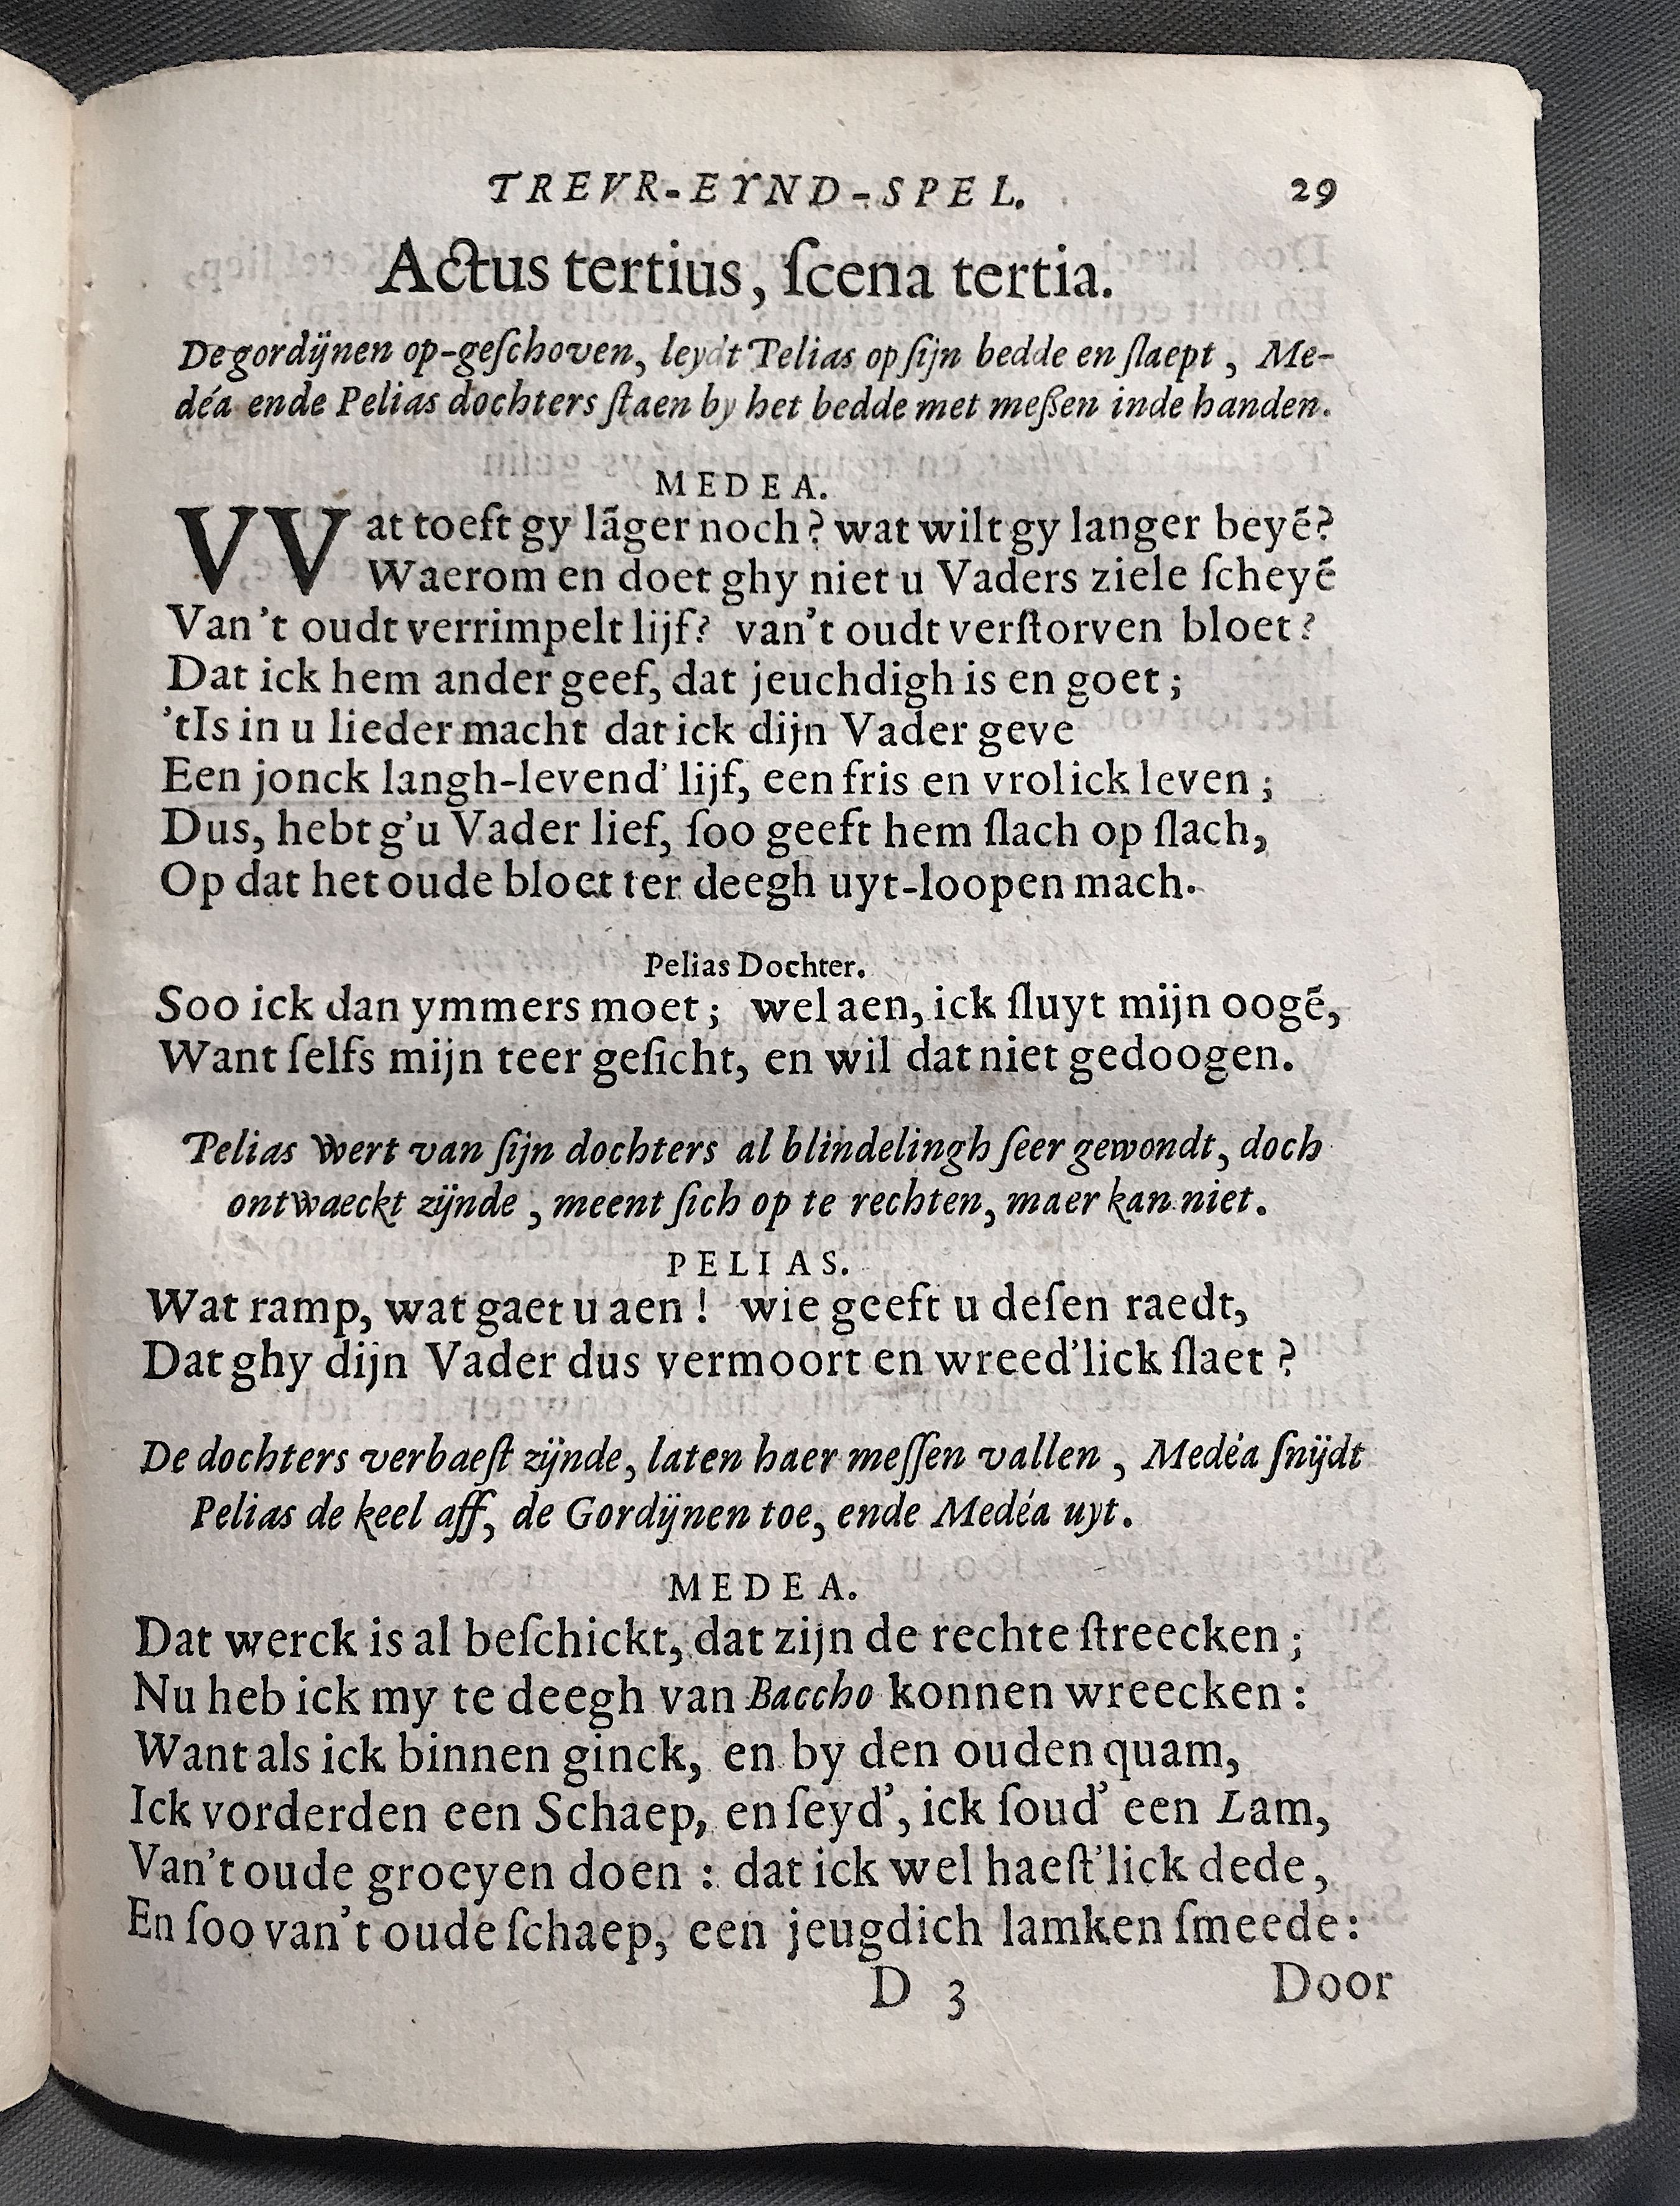 TREVR-EYND-SPEL. 29
Actus tertius, ſcena tertia.
De gordijnen op-geſchoven, leydt Pelias op ſijn bedde en ſlaept, Me-
déa ende Pelias dochters ſtaen by het bedde met meßen inde handen.
MEDEA.
VVat toeft gy lãger noch? wat wilt gy langer beyẽ?
Waerom en doet ghy niet u Vaders ziele ſcheyẽ
Van't oudt verrimpelt lijf? van't oudt verſtorven bloet?
Dat ick hem ander geef, dat jeuchdigh is en goet;
'tIs in u lieder macht dat ick dijn Vader geve
Een jonck langh-levend' lijf, een fris en vrolick leven;
Dus, hebt g'u Vader lief, ſoo geeft hem ſlach op ſlach,
Op dat het oude bloet ter deegh uyt-loopen mach.
Pelias Dochter.
Soo ick dan ymmers moet; wel aen, ick ſluyt mijn oogẽ,
Want ſelfs mijn teer geſicht, en wil dat niet gedoogen.
Pelias wert van ſijn dochters al blindelingh ſeer gewondt, doch
ontwaeckt zijnde, meent ſich op te rechten, maer kan niet.
PELIAS.
Wat ramp, wat gaet u aen! wie geeft u deſen raedt,
Dat ghy dijn Vader dus vermoort en wreed'lick ſlaet?
De dochters verbaeſt zijnde, laten haer meſſen vallen, Medéa ſnijdt
Pelias de keel aff, de Gordijnen toe, ende Medéa uyt.
MEDEA.
Dat werck is al beſchickt, dat zijn de rechte ſtreecken;
Nu heb ick my te deegh van Baccho konnen wreecken:
Want als ick binnen ginck, en by den ouden quam,
Ick vorderden een Schaep, en ſeyd', ick ſoud' een Lam,
Van't oude groeyen doen: dat ick wel haeſt'lick dede,
En ſoo van't oude ſchaep, een jeugdich lamken ſmeede:
D 3 Door